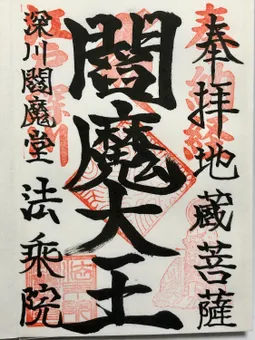 奉拝地蔵菩薩
閻魔大王
深川閻魔堂法乗院